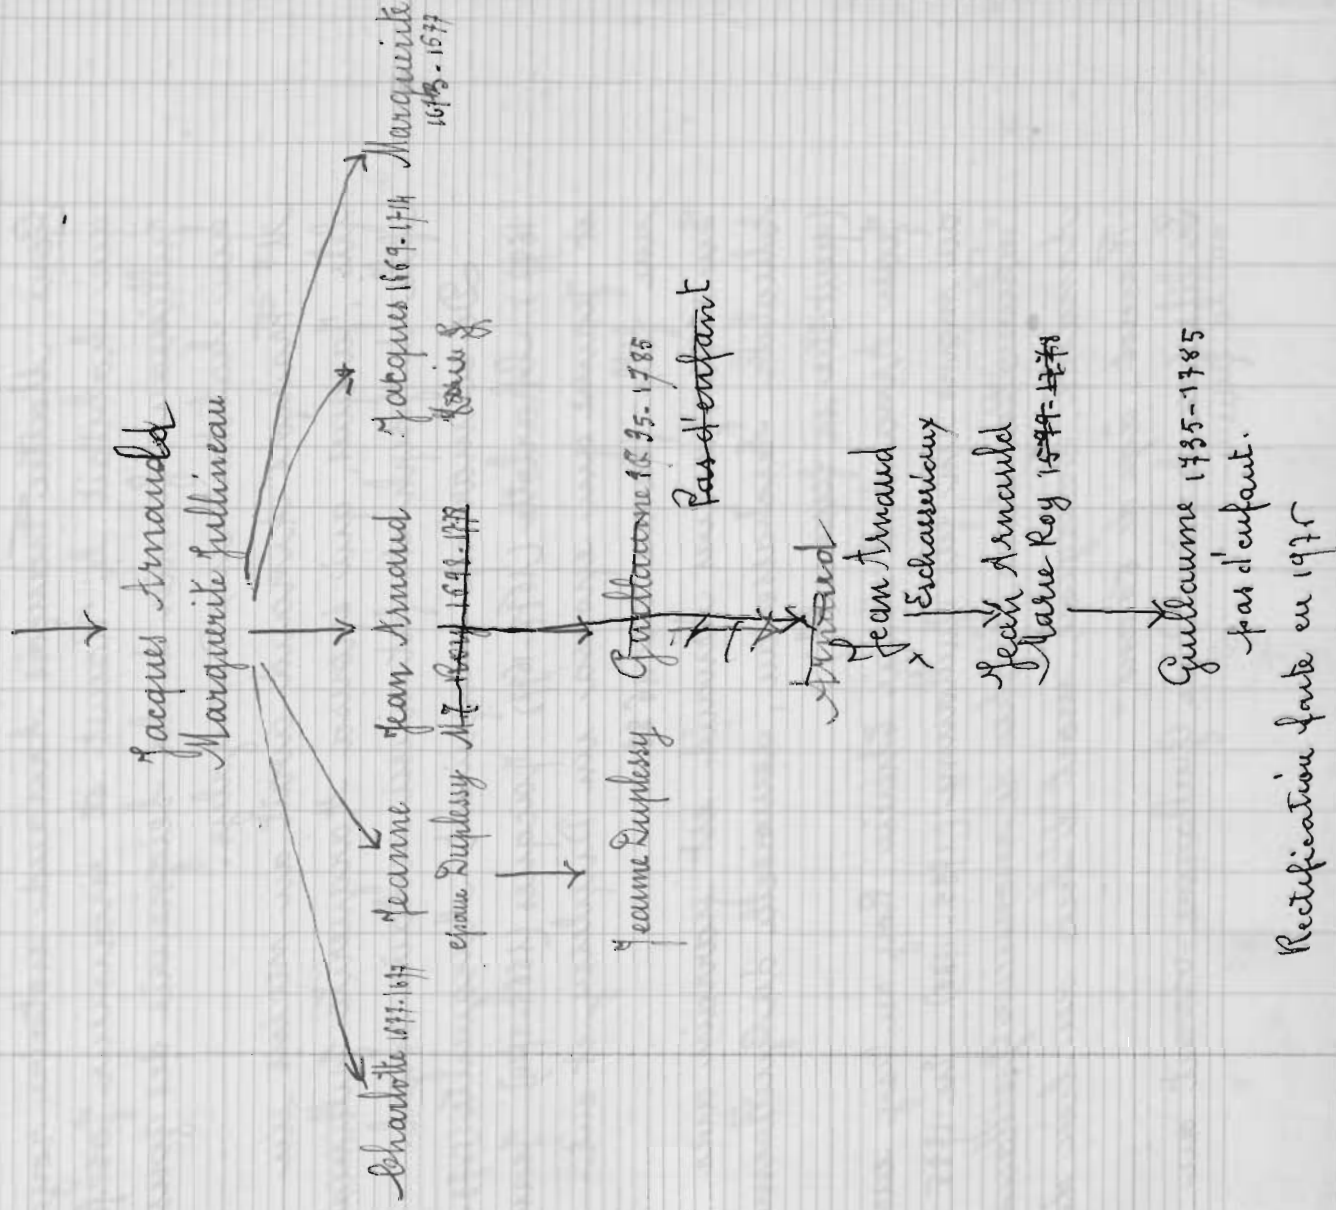 Jacques Arnaud
Marguerite Jullineau
Charlotte 1677-1677
Jeanne
épouse Duplessy
Jean Arnaud
M. J. Roy 1698-1778
Jacques 1669-1714
Marguerite
1673-1677
Jeanne Duplessy
Guillaume 1735-1785
Pas d'enfant
Arnaud
Jean Arnaud
x Eschasseriaux
Jean Arnauld
Marie Roy 1699-1778
Guillaume 1735-1785
pas d'enfant.
Rectification faite en 1975